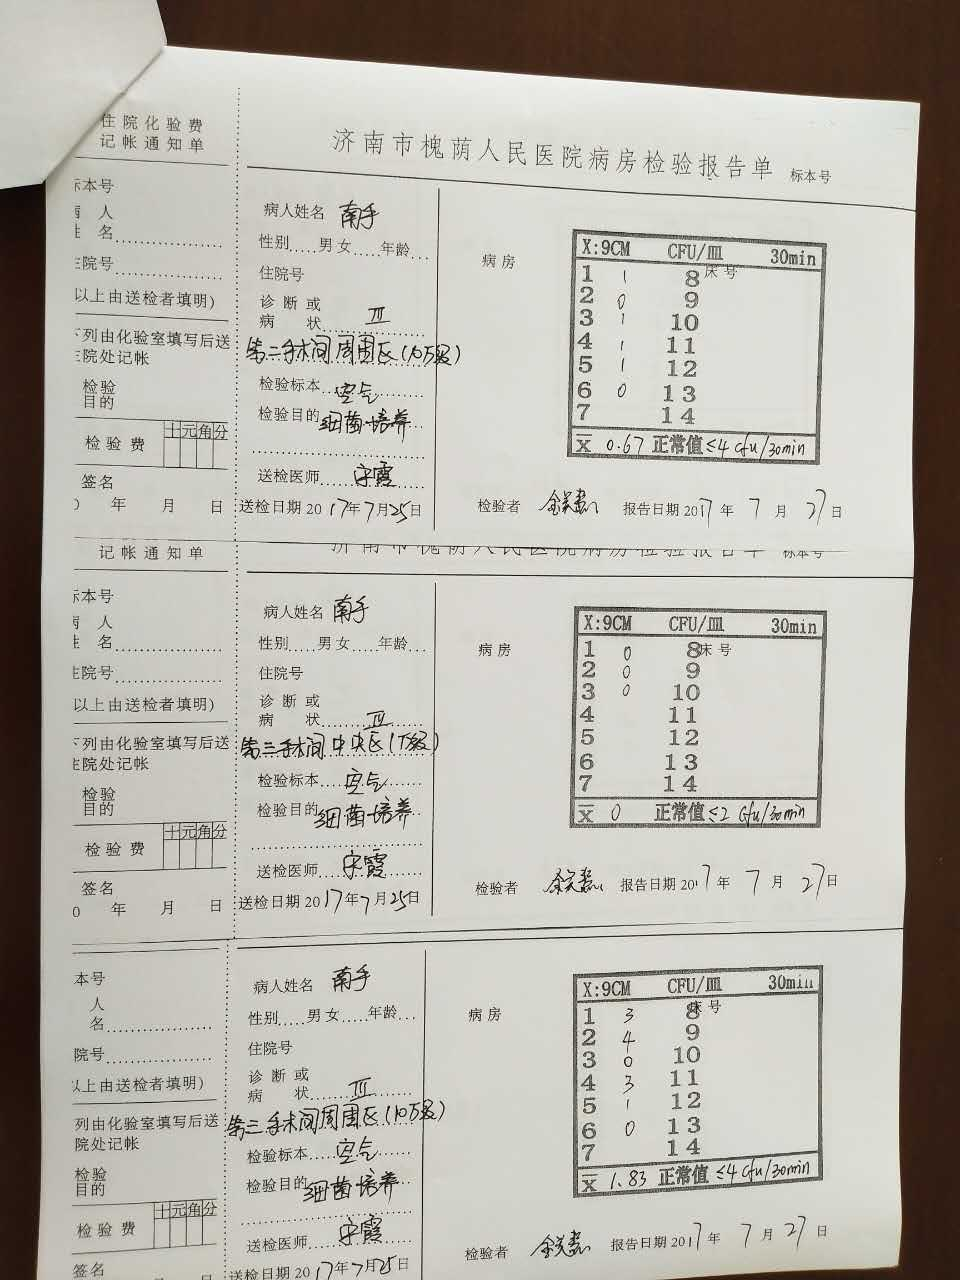 住院化验费
记帐通知单
济南市槐荫人民医院病房检验报告单 标本号
标本号
病人
姓名
住院号
以上由送检者填明)
下列由化验室填写后送
住院处记帐
检验
目的
检验费 十元角分
签名
0 年 月 日
病人姓名 南手
性别 男女 年龄
住院号
诊断或
病状 III
第二手术间周围区(10万级)
检验标本 空气
检验目的 细菌培养
送检医师 宋霞
送检日期 2017年7月25日
病房
床号
X:9CM CFU/皿 30min
1 1 8
2 0 9
3 1 10
4 1 11
5 1 12
6 0 13
7 14
X̄ 0.67 正常值≤4 cfu/30min
检验者 报告日期 2017年7月27日
记帐通知单
济南市槐荫人民医院病房检验报告单 标本号
标本号
病人
姓名
住院号
以上由送检者填明)
下列由化验室填写后送
住院处记帐
检验
目的
检验费 十元角分
签名
0 年 月 日
病人姓名 南手
性别 男女 年龄
住院号
诊断或
病状 III
第三手术间中央区(万级)
检验标本 空气
检验目的 细菌培养
送检医师 宋霞
送检日期 2017年7月25日
病房
床号
X:9CM CFU/皿 30min
1 0 8
2 0 9
3 0 10
4 11
5 12
6 13
7 14
X̄ 0 正常值≤2 cfu/30min
检验者 报告日期 2017年7月27日
本号
人
名
院号
以上由送检者填明)
列由化验室填写后送
院处记帐
检验
目的
检验费 十元角分
签名
病人姓名 南手
性别 男女 年龄
住院号
诊断或
病状 III
第三手术间周围区(10万级)
检验标本 空气
检验目的 细菌培养
送检医师 宋霞
送检日期 2017年7月25日
病房
床号
X:9CM CFU/皿 30min
1 3 8
2 4 9
3 0 10
4 3 11
5 1 12
6 0 13
7 14
X̄ 1.83 正常值≤4 cfu/30min
检验者 报告日期 2017年7月27日